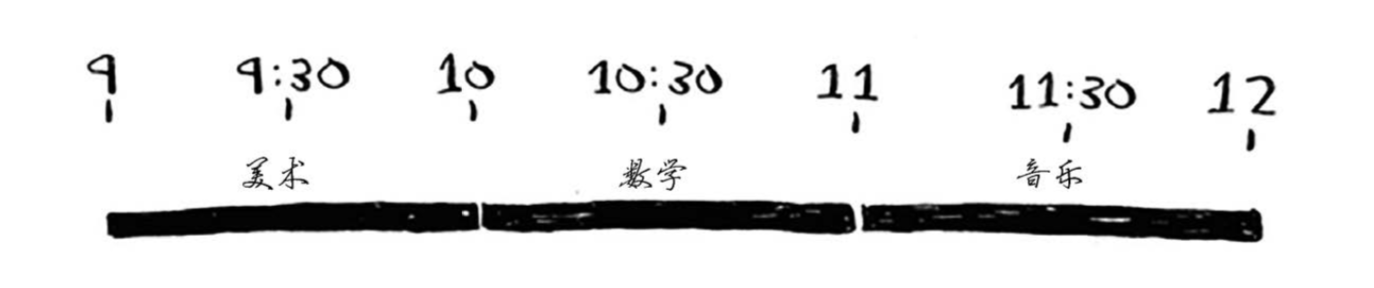 9 9:30 10 10:30 11 11:30 12
美术 数学 音乐